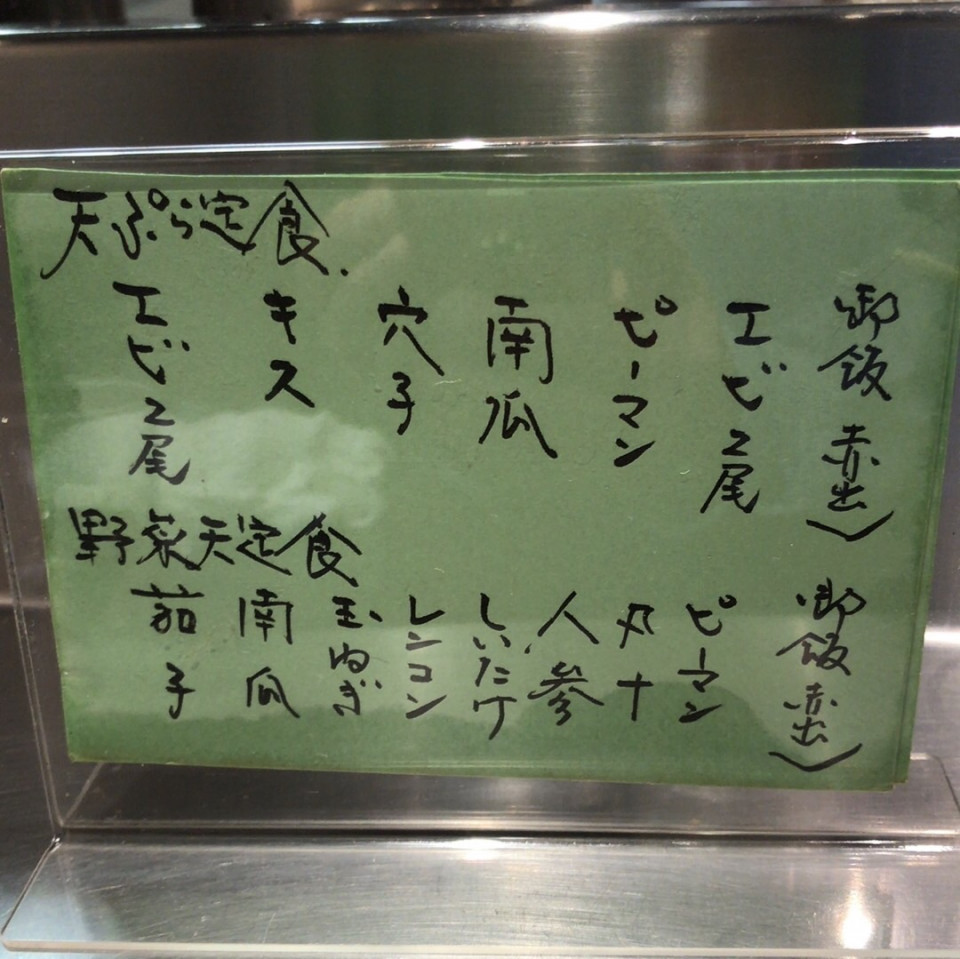 天ぷら定食.
エビ2尾
キス
穴子
南瓜
ピーマン
エビ2尾
御飯 赤出)
野菜天定食
茄子
南瓜
玉ねぎ
レンコン
しいたけ
人参
丸十
ピーマン
御飯 赤出)